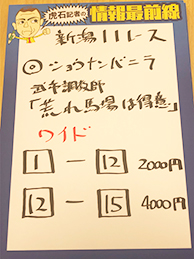 虎石記者の
情報最前線
新潟11レース
◎ショウナンバニラ
武幸調教師
「荒れ馬場は得意」
ワイド
1 - 12 2000円
12 - 15 4000円